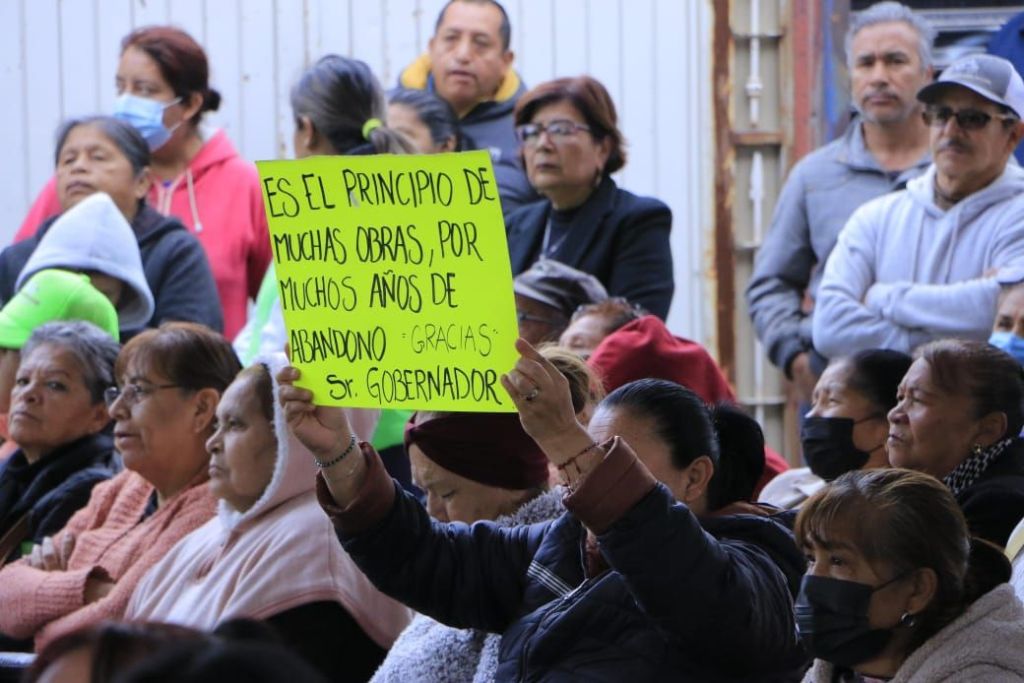 ES EL PRINCIPIO DE
MUCHAS OBRAS, POR
MUCHOS AÑOS DE
ABANDONO "GRACIAS"
Sr. GOBERNADOR